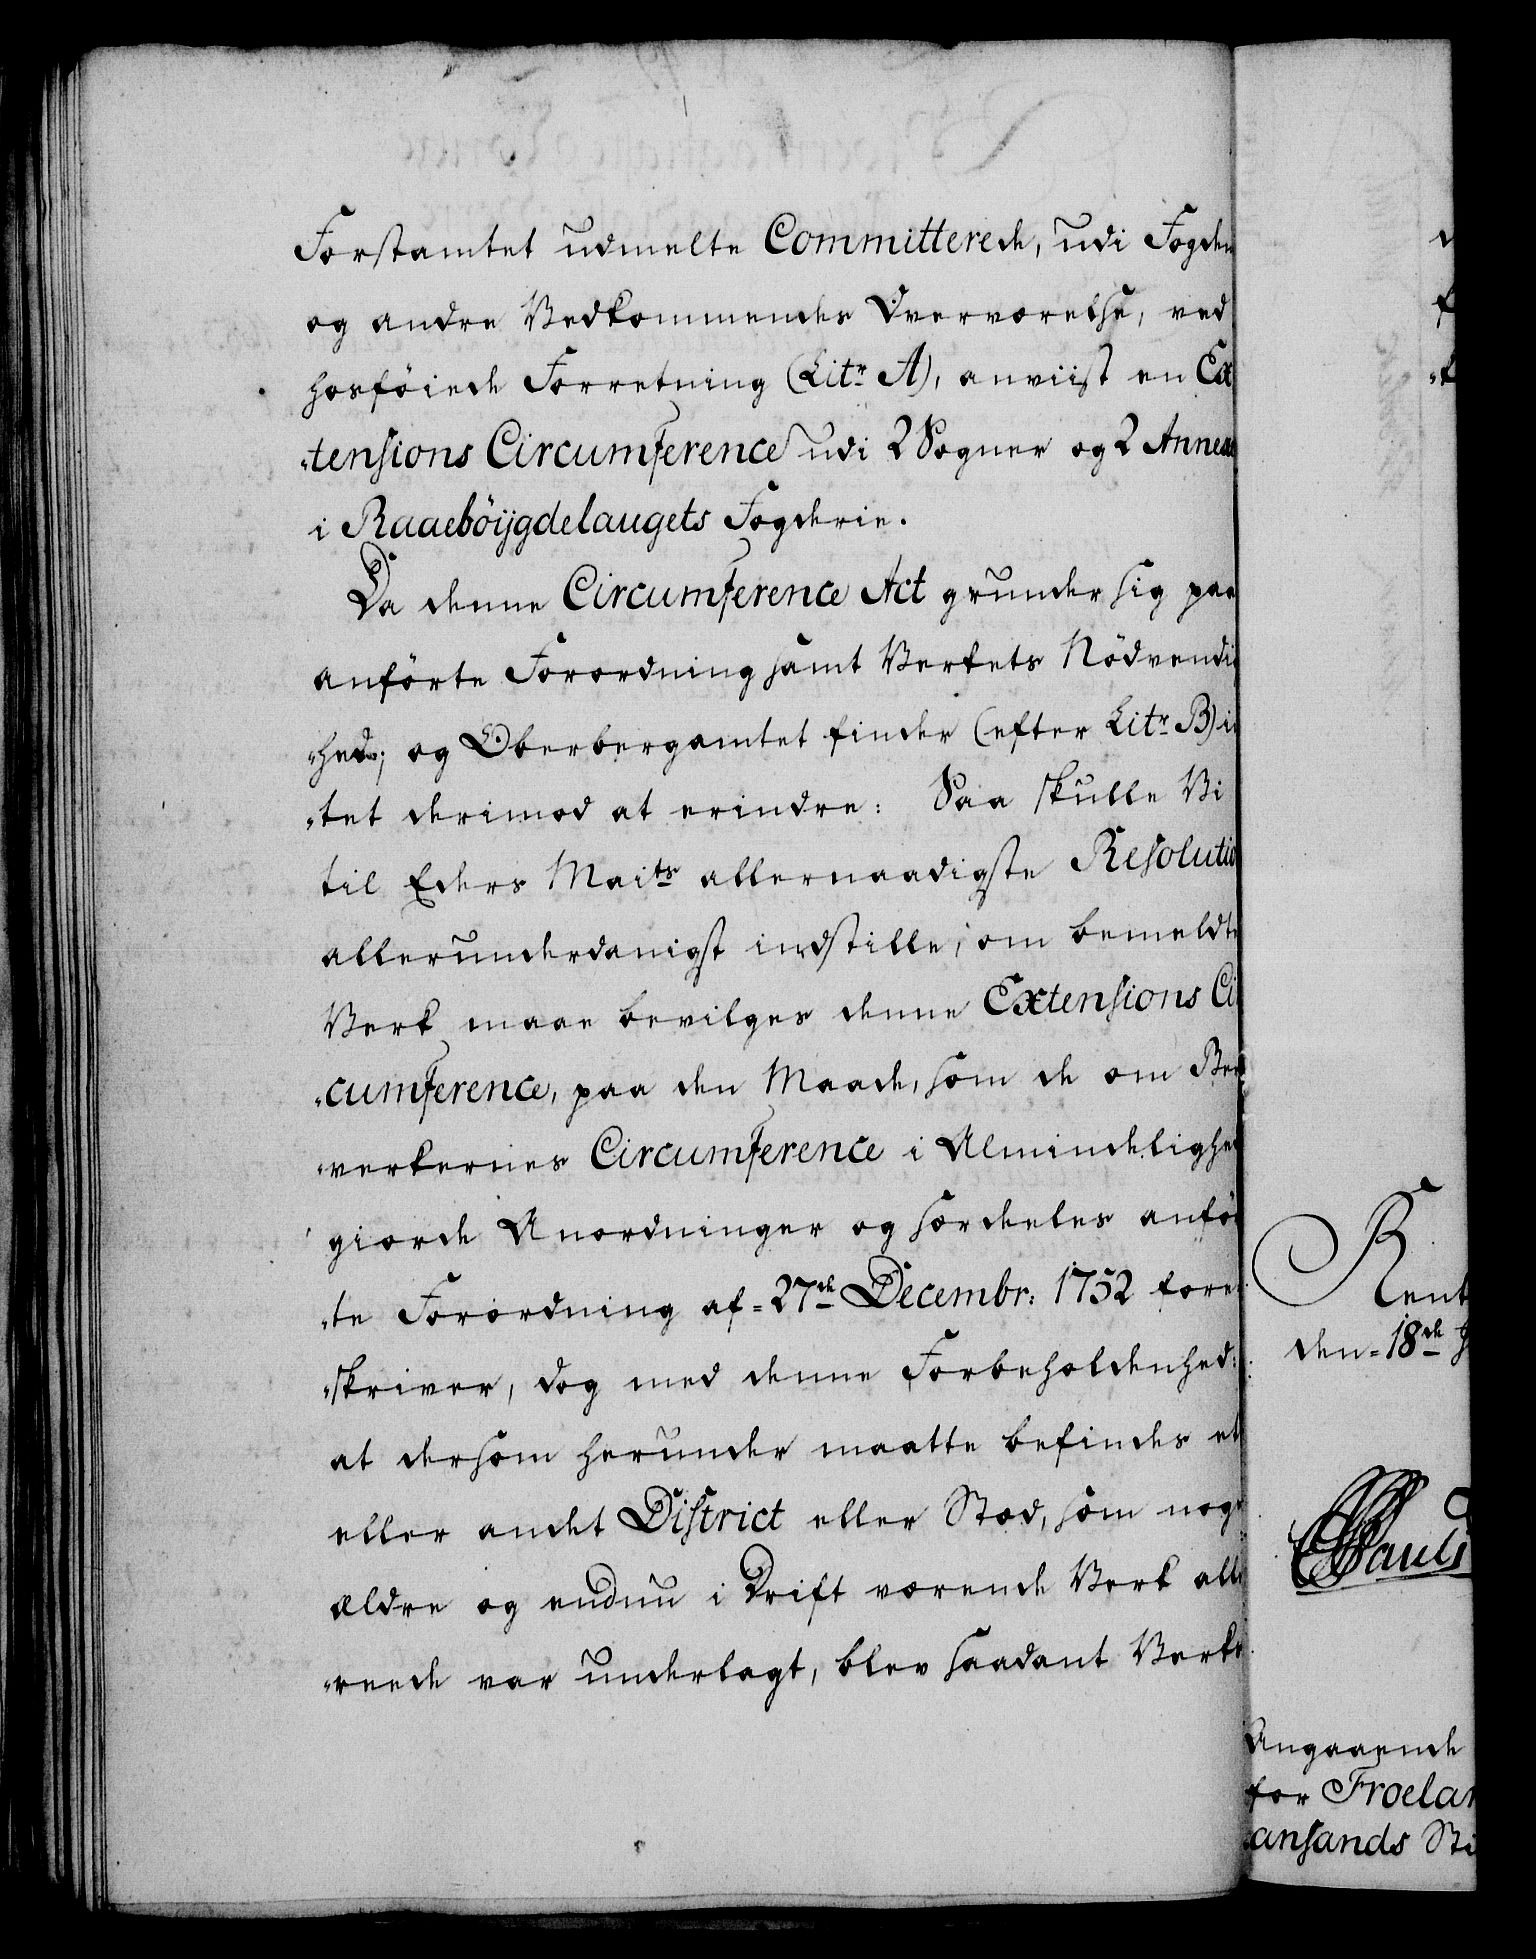 Forstamtet udmelte Committerede, udi Fogden
og andre Vedkommendes Overværelse, ved
hosföiede Forretning (Litr A), anviist en Ex
„tensions Circumference udi 2 Sogner og 2 Annexe
i Raaeböygdelaugets Fogderie.
Da denne Circumference Act grunder sig paa
anförte Forordning samt Verkets Nödvendig
„hed; og Oberbergamtet finder (efter Litr B) in
„tet derimod at erindre: Saa skulle Vi
til Eders Maits allernaadigste Resolution
allerunderdanigst indstille, om bemeldte
Verk maae bevilges denne Extensions Cir
„cumference, paa den Maade, som de om Berg
„verkernes Circumference i Almindelighed
giorde Anordninger og særdeles anför
„te Forordning af 27de Decembr: 1752 fore
„skriver, dog med denne Forbeholdenhed:
at dersom herunder maatte befindes et
eller andet District eller Stæd, som noget
ældre og endnu i Drift værende Verk alle
„reede var underlagt, blev saadant Verks
Rent
den 18de
Angaaende
for Froelan
ansands Sti